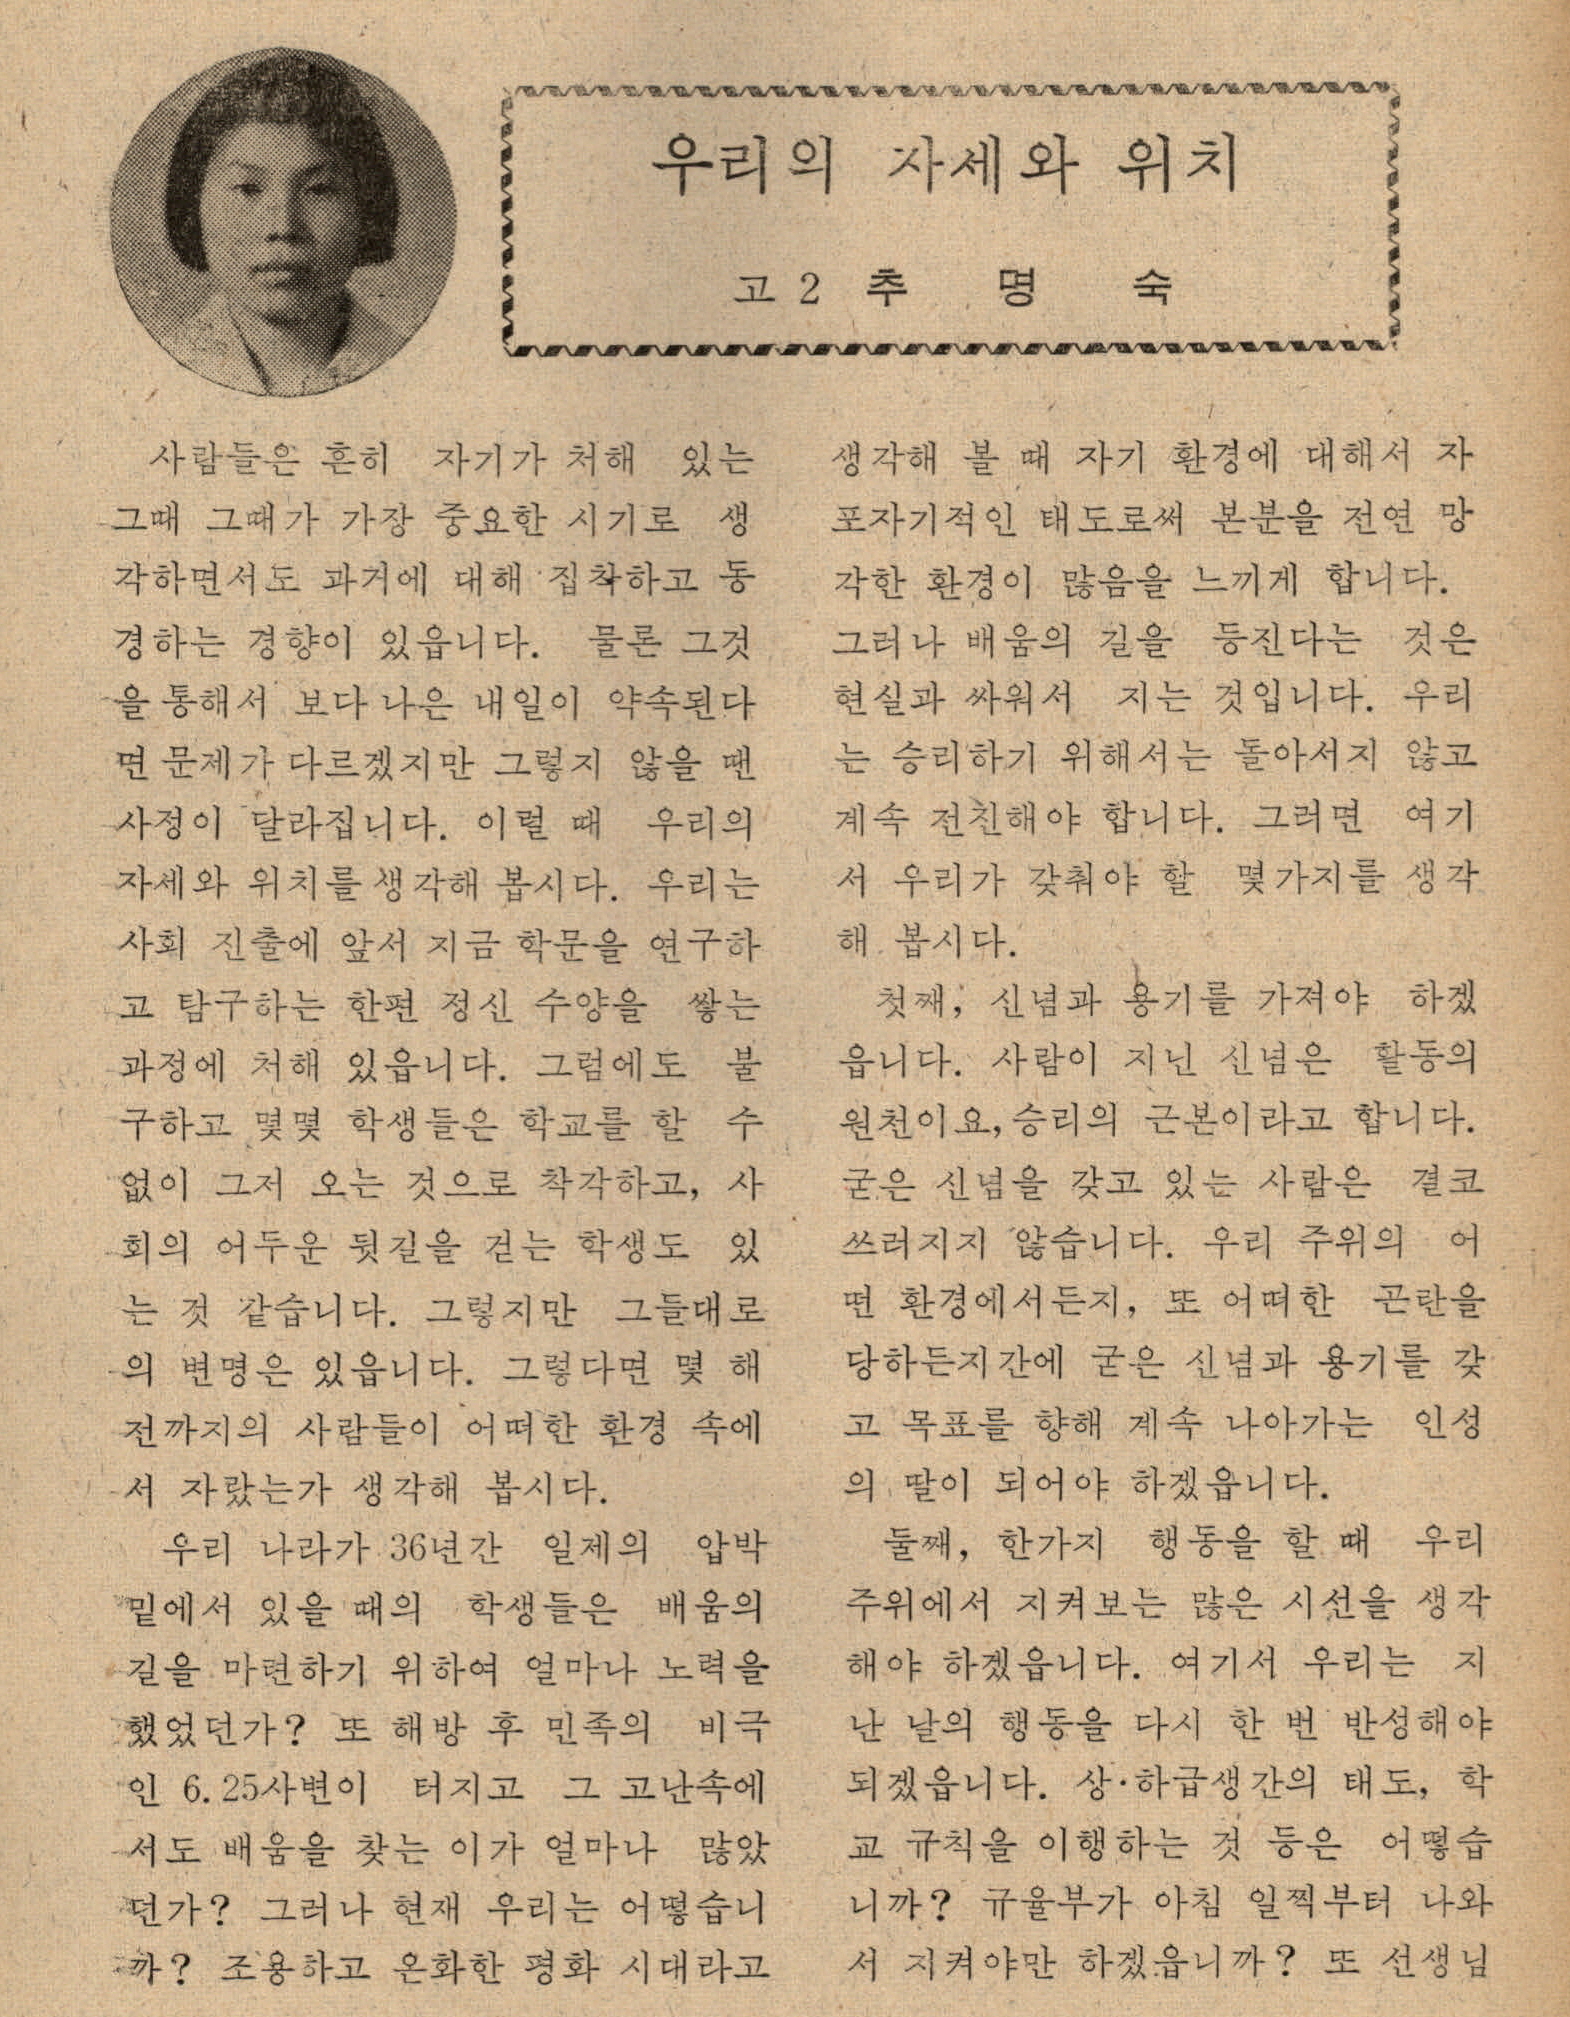 우리의 자세와 위치
고2 추 명 숙
사람들은 흔히 자기가 처해 있는
그때 그때가 가장 중요한 시기로 생
각하면서도 과거에 대해 집착하고 동
경하는 경향이 있읍니다. 물론 그것
을 통해서 보다 나은 내일이 약속된다
면 문제가 다르겠지만 그렇지 않을 땐
사정이 달라집니다. 이럴 때 우리의
자세와 위치를 생각해 봅시다. 우리는
사회 진출에 앞서 지금 학문을 연구하
고 탐구하는 한편 정신 수양을 쌓는
과정에 처해 있읍니다. 그럼에도 불
구하고 몇몇 학생들은 학교를 할 수
없이 그저 오는 것으로 착각하고, 사
회의 어두운 뒷길을 걷는 학생도 있
는 것 같습니다. 그렇지만 그들대로
의 변명은 있읍니다. 그렇다면 몇 해
전까지의 사람들이 어떠한 환경 속에
서 자랐는가 생각해 봅시다.
우리 나라가 36년간 일제의 압박
밑에서 있을 때의 학생들은 배움의
길을 마련하기 위하여 얼마나 노력을
했었던가? 또 해방 후 민족의 비극
인 6.25사변이 터지고 그 고난속에
서도 배움을 찾는 이가 얼마나 많았
던가? 그러나 현재 우리는 어떻습니
까? 조용하고 온화한 평화 시대라고
생각해 볼 때 자기 환경에 대해서 자
포자기적인 태도로써 본분을 전연 망
각한 환경이 많음을 느끼게 합니다.
그러나 배움의 길을 등진다는 것은
현실과 싸워서 지는 것입니다. 우리
는 승리하기 위해서는 돌아서지 않고
계속 전진해야 합니다. 그러면 여기
서 우리가 갖춰야 할 몇가지를 생각
해 봅시다.
첫째, 신념과 용기를 가져야 하겠
읍니다. 사람이 지닌 신념은 활동의
원천이요, 승리의 근본이라고 합니다.
굳은 신념을 갖고 있는 사람은 결코
쓰러지지 않습니다. 우리 주위의 어
떤 환경에서든지, 또 어떠한 곤란을
당하든지간에 굳은 신념과 용기를 갖
고 목표를 향해 계속 나아가는 인성
의 딸이 되어야 하겠읍니다.
둘째, 한가지 행동을 할 때 우리
주위에서 지켜보는 많은 시선을 생각
해야 하겠읍니다. 여기서 우리는 지
난 날의 행동을 다시 한 번 반성해야
되겠읍니다. 상·하급생간의 태도, 학
교 규칙을 이행하는 것 등은 어떻습
니까? 규율부가 아침 일찍부터 나와
서 지켜야만 하겠읍니까? 또 선생님